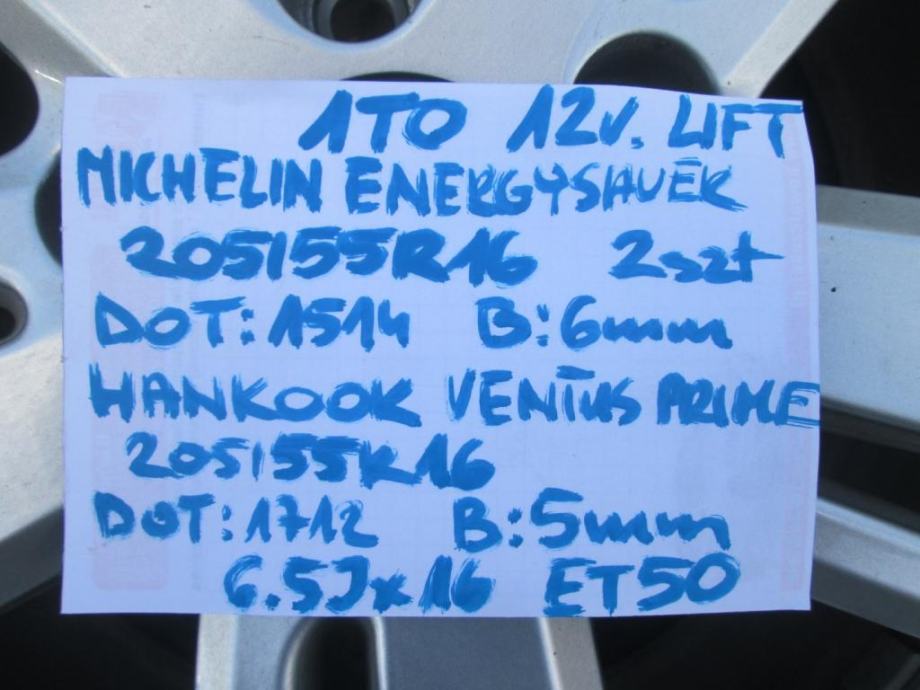 1TO 12V. LIFT
MICHELIN ENERGYSAVER
205/55R16 2szt
DOT:1514 B:6mm
HANKOOK VENTUS PRIME
205/55R16
DOT:1712 B:5mm
6.5Jx16 ET50